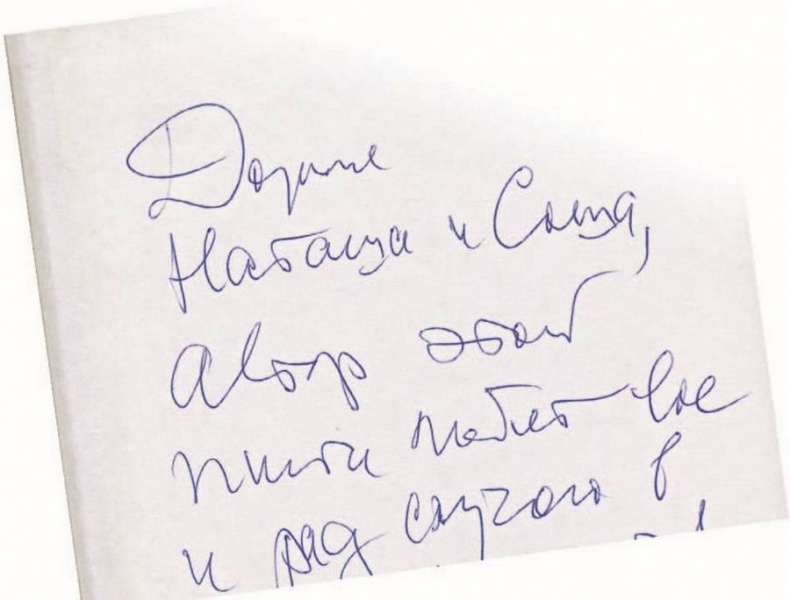 Дорогие
Наташа и Саша,
автор этой
книги любит вас
и рад случаю в